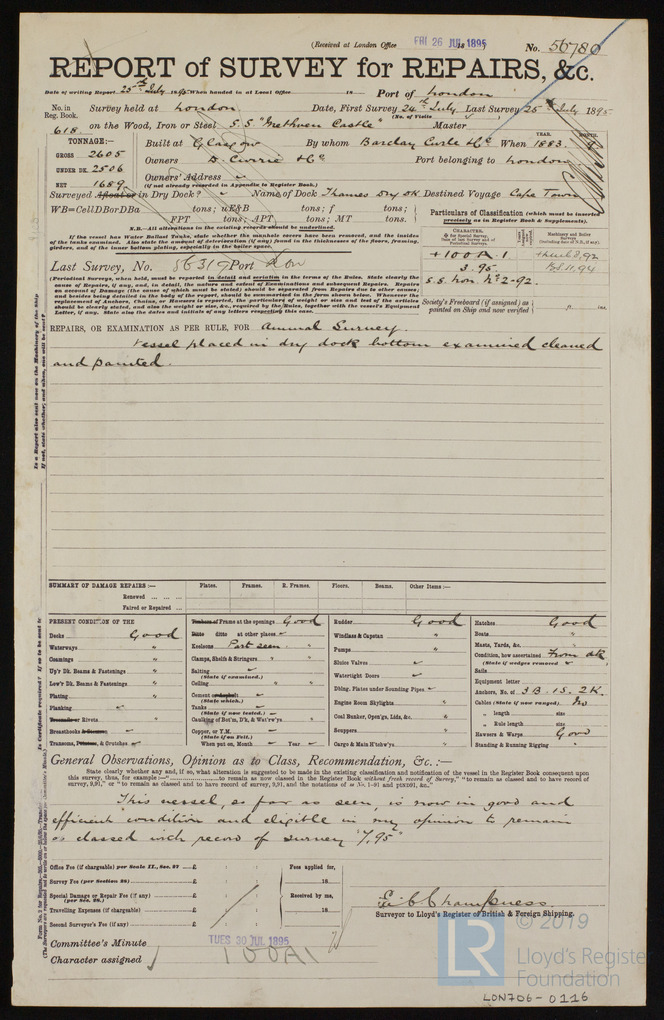 (Received at London Office FRI 26 JUL 1895 No. 56780
REPORT of SURVEY for REPAIRS, &c.
Date of writing Report 25th July 1895 When handed in at Local Office 18 Port of London
No. in Reg. Book. Survey held at London. Date, First Survey 24th July Last Survey 25th July 1895
(No. of Visits
618. on the Wood, Iron or Steel S.S. "Methven Castle" Master
TONNAGE:— Built at Glasgow By whom Barclay Curle & Co When 1883. YEAR. MONTH.
GROSS 2605
UNDER DK. 2506 Owners D. Currie & Co Port belonging to London
NET 1689 Owners' Address
(if not already recorded in Appendix to Register Book.)
Surveyed Afloat or in Dry Dock? Name of Dock Thames Dry Dk. Destined Voyage Cape Town
WB=CellDBorDBa tons; uE&B tons; f tons;
FPT tons; APT tons; MT tons.
Particulars of Classification (which must be inserted precisely as in Register Book & Supplements).
N.B.—All alterations in the existing records should be underlined.
If the vessel has Water Ballast Tanks, state whether the manhole covers have been removed, and the insides
of the tanks examined. Also state the amount of deterioration (if any) found in the thicknesses of the floors, framing,
girders, and of the inner bottom plating, especially in the boiler space.
CHARACTER.
Machinery and Boiler Surveys
+100A.1
3.95
S.S. Lon. No 2-92
Last Survey, No. 56319 Port Lon
(Periodical Surveys, when held, must be reported in detail and seriatim in the terms of the Rules. State clearly the
cause of Repairs, if any, and, in detail, the nature and extent of Examinations and subsequent Repairs. Repairs
on account of Damage (the cause of which must be stated) should be separated from Repairs due to other causes;
and besides being detailed in the body of the report, should be summarised in the form shown below. Whenever the
replacement of Anchors, Chains, or Hawsers is reported, the particulars of weight or size and test of the articles
should be clearly stated, and also the weight or size, &c., required by the Rules, together with the vessel's Equipment
Letter, if any. State also the dates and initials of any letters respecting this case.
Society's Freeboard (if assigned) as
painted on Ship and now verified ft. in.
REPAIRS, OR EXAMINATION AS PER RULE, FOR Annual Survey.
Vessel placed in dry dock bottom examined cleaned
and painted.
SUMMARY OF DAMAGE REPAIRS:— Plates. Frames. R. Frames. Floors. Beams. Other Items:—
Renewed
Faired or Repaired
PRESENT CONDITION OF THE
Decks Good
Waterways "
Coamings "
Up'r Dk. Beams & Fastenings "
Low'r Dk. Beams & Fastenings "
Plating "
Planking
Treenails or Rivets "
Breasthooks & Stemson
Transoms, Pointers, & Crutches "
Timbers or Frame at the openings Good
Ditto ditto at other places
Keelsons Part seen.
Clamps, Shelfs & Stringers "
Salting
(State if examined.)
Ceiling "
Cement or Asphalt
(State which.)
Tanks
(State if now tested)
Caulking of Bot'm, D'k, & Wat'rw'ys "
Copper, or Y.M.
(State if on Felt.)
When put on, Month Year
Rudder Good
Windlass & Capstan "
Pumps "
Sluice Valves
Watertight Doors
Dblng. Plates under Sounding Pipes
Engine Room Skylights "
Coal Bunker, Open'gs, Lids, &c. "
Scuppers "
Cargo & Main H'tchw'ys "
Hatches Good
Boats "
Masts, Yards, &c. "
Condition, how ascertained From dk
(State if wedges removed
Sails
Equipment letter
Anchors, No. of 3B. 1S. 2K.
Cables (State if now ranged). No
„ length size
„ Rule length size
Hawsers & Warps Good
Standing & Running Rigging "
General Observations, Opinion as to Class, Recommendation, &c.:—
State clearly whether any, and if so, what alteration is suggested to be made in the existing classification and notification of the vessel in the Register Book consequent upon
this survey, thus, for example:—" to remain as now classed in the Register Book without fresh record of Survey," "to remain as classed and to have record of
survey, 9,91," or "to remain as classed and to have record of survey, 9,91, and the notations of
This vessel, so far as seen, is now in good and
efficient condition and eligible in my opinion to remain
as classed with record of survey "7,95"
Office Fee (if chargeable) per Scale II., Sec. 27 £
Survey Fee (per Section 28) £
Special Damage or Repair Fee (if any) £
(per Sec. 28.)
Travelling Expenses (if chargeable) £
Second Surveyor's Fee (if any) £
Fees applied for, 18
Received by me, 18
E. C. Champness.
Surveyor to Lloyd's Register of British & Foreign Shipping.
Committee's Minute TUES 30 JUL 1895
Character assigned 100A1
© 2019
LR
Lloyd's Register
Foundation
LON706-0116